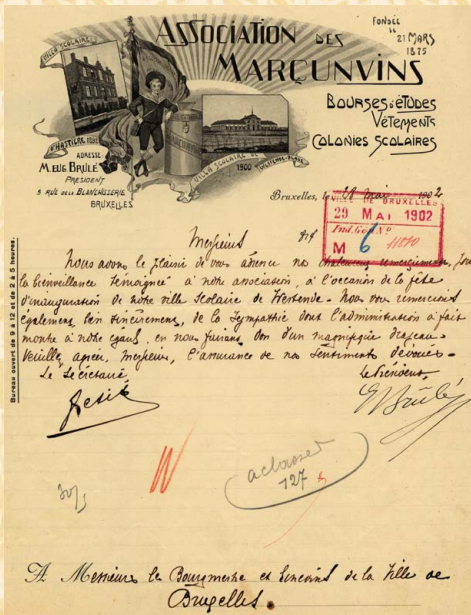 ASSOCIATION DES
MARÇUNVINS
FONDÉE
LE
21 MARS
1875
BOURSES D'ÉTUDES
VÊTEMENTS
COLONIES SCOLAIRES
VILLA SCOLAIRE
D'HASTIÈRE
VILLA SCOLAIRE DE
1900
ADRESSE
M. EUG. BRÛLÉ
PRÉSIDENT
5 RUE DE LA BLANCHISSERIE
BRUXELLES
Bruxelles, le 28 mai 1902
VILLE DE BRUXELLES
29 MAI 1902
Ind. Gén. No
M 6
Bureau ouvert de 9 à 12 et de 2 à 5 heures.
Messieurs
Nous avons le plaisir de vous adresser nos remerciements, pour
la bienveillance témoignée à notre association, à l'occasion de la fête
d'inauguration de notre villa scolaire de Westende. Nous vous remercions
également, bien sincèrement, de la sympathie dont l'administration a fait
montre à notre égard, en nous faisant don d'un magnifique drapeau.
Veuillez agréer, Messieurs, l'assurance de nos sentiments dévoués.
Le Secrétaire
Le Président
E Brûlé
a classer
127
A Messieurs le Bourgmestre et Echevins de la Ville de
Bruxelles.